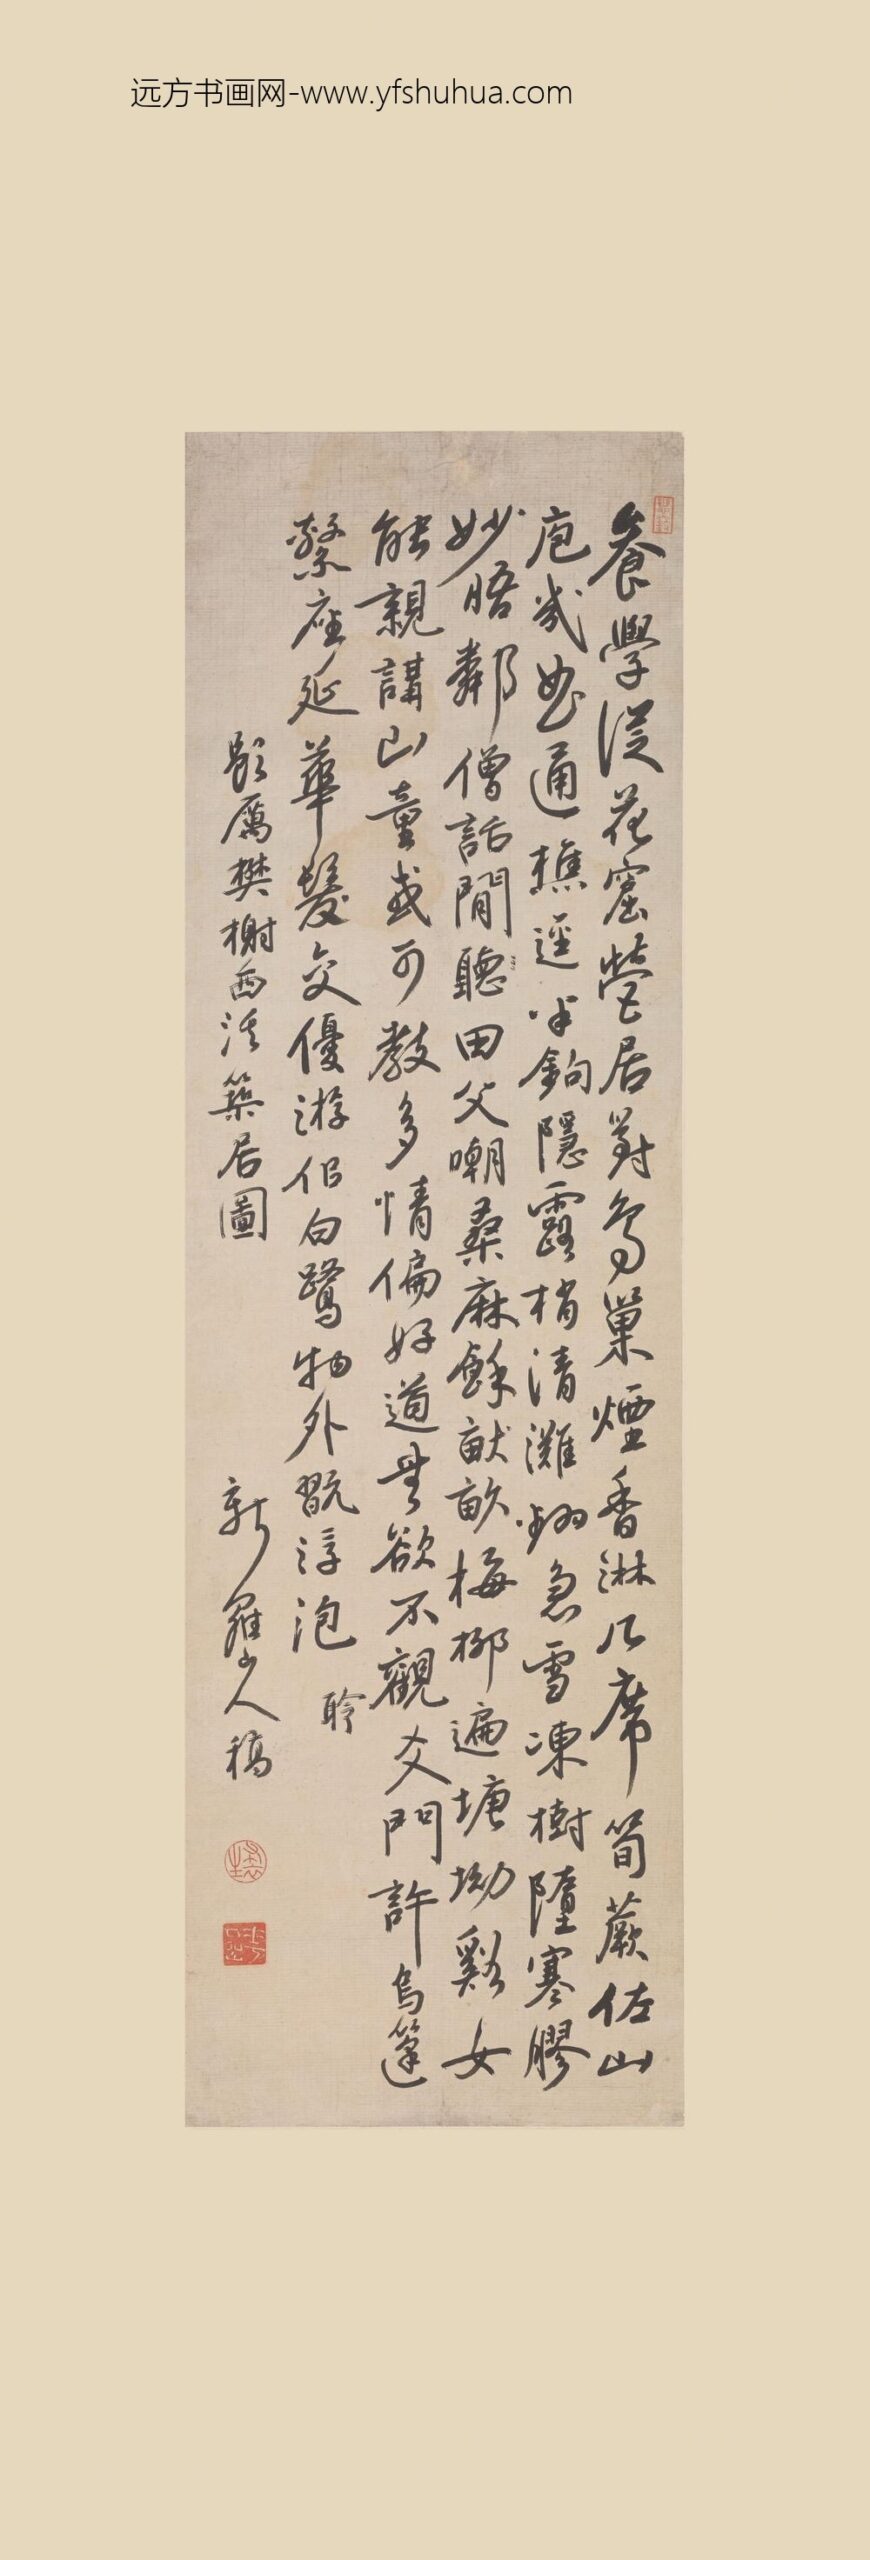 远方书画网-www.yfshuhua.com
養學從花窟營居對鳥巢煙香淋几席筍蕨佐山
庖幾曲通樵逕半鉤隱露梢清灘翻急雪凍樹墮寒膠
妙悟鄰僧話閒聽田父嘲桑麻餘畎畝梅柳遍塘坳谿女
能親講山童或可教多情偏好道無欲不觀爻門許烏篷
繫座延華髮交優游侶白鷺物外翫浮泡
聆
題厲樊榭西溪築居圖
新羅山人稿